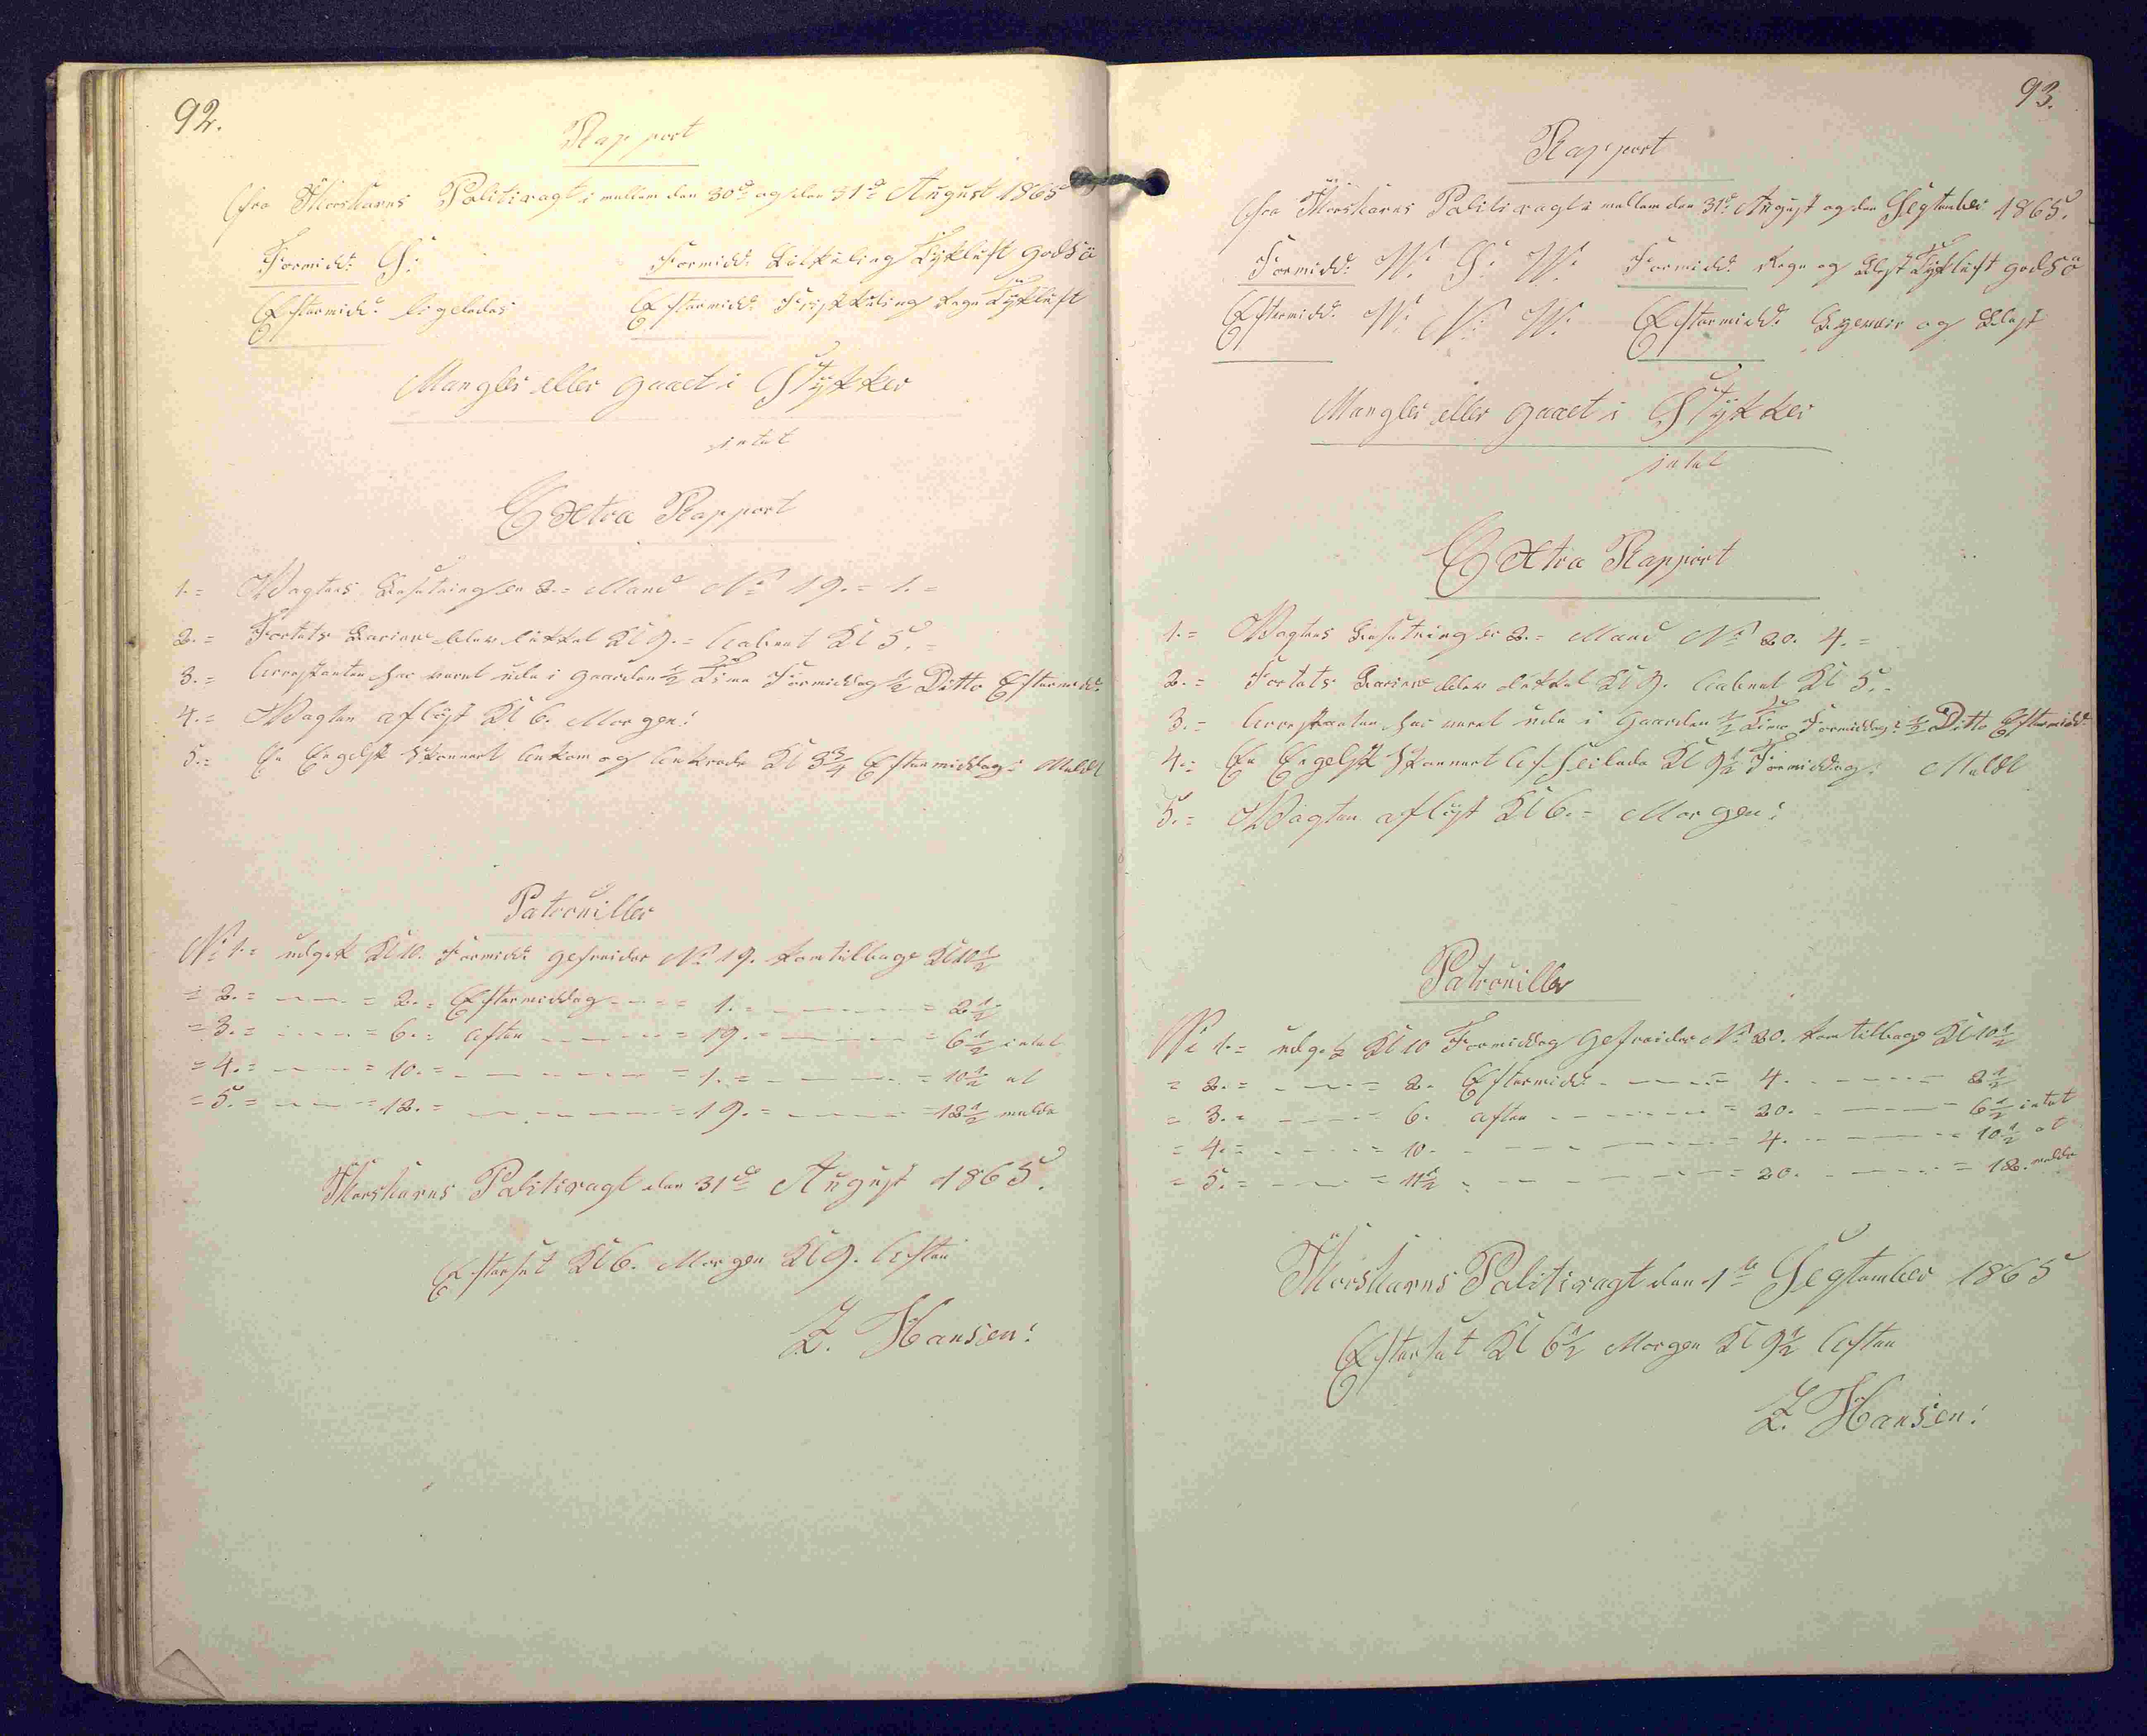 92.
Rapport
fra Thorshavns Politivagt i mellem den 30d og den 31d August 1865
Formidd: S:
Formidd: Kuling Tÿkluft godsö
Eftermidd: ligeledes
Eftermidd: Frisk Kuling Regn Tÿkluft
Mangler eller gaaet i Stÿkker
intet
Extra Rapport
1.= Wagtens Besetning er 2.= Mand No 19.= 1.=
2.= Fortets Barierer blev lukket Kl 9.= Aabnet Kl 5.=
3.= Arrestanten har været ude i gaarden ½ Time Formiddag ½ Ditto Eftermidd:
4.= Wagten aflöst Kl 6. Morgen:
5.= En Engelsk Skonnert Ankom og Ankrede Kl 3¾ Eftermiddag: Meldt
Patrouiller
No 1.= udgik Kl 10. Formidd: gefreider No 19. kom tilbage Kl 10½
= 2.= = 2.= Eftermiddag = 1. = 2½
= 3.= = 6.= Aften = 19. = 6½ intet
= 4.= = 10.= = 1. = 10½ at
= 5.= = 12.= = 19.= = 12½ melde
Thorshavns Politivagt den 31d August 1865.
Efterset Kl 6. Morgen Kl 9. Aften
Z. Hansen:
93.
Rapport
fra Thorshavns Politivagt i mellem den 31d August og den September 1865.
Formidd: W: S: W:
Formidd: Regn og Blest Tÿkluft godsö
Eftermidd: W: N: W:
Eftermidd: og Blest
Mangler eller gaaet i Stÿkker
intet
Extra Rapport
1.= Wagtens Besetning er 2.= Mand No 20. 4.=
2.= Fortets Barierer blev lukket Kl 9. Aabnet Kl 5.=
3.= Arrestanten har været ude i Gaarden ½ Time Formiddag: ½ Ditto Eftermidd:
4.= En Engelsk Skonnert Af Seilede Kl 9½ Formiddag: Meldt
5.= Wagten aflöst Kl 6.= Morgen:
Patrouiller
No 1.= udgik Kl 10 Formiddag Gefreider No 20. kom tilbage Kl 10½
= 2.= = 2. Eftermidd: = 4. = 2½
= 3.= = 6. Aften = 20. = 6½ intet
= 4.= = 10. = 4. = 10½ at
= 5.= = 11½ = 20. = 12. melde
Thorshavns Politivagt den 1te September 1865
Efterset Kl 6½ Morgen Kl 9½ Aften
Z. Hansen: